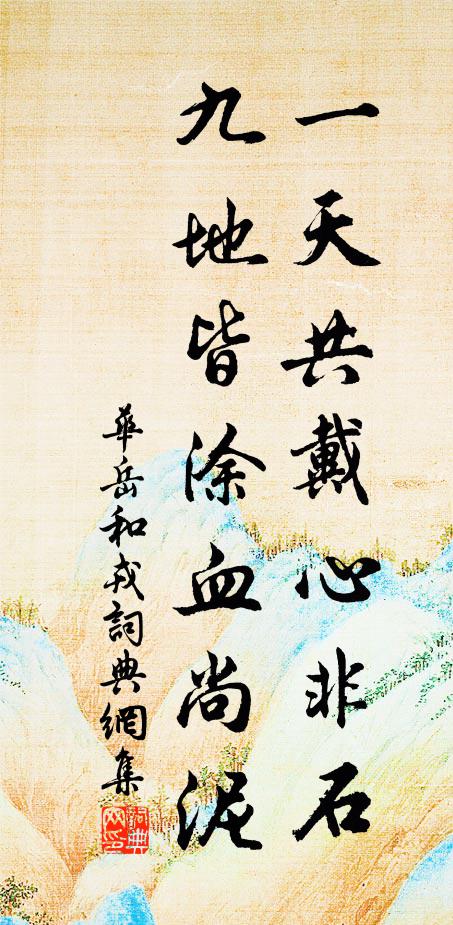 一天共戴心非石
九地皆涂血尚泥
華岳和戎詞典網集
詞典
网印